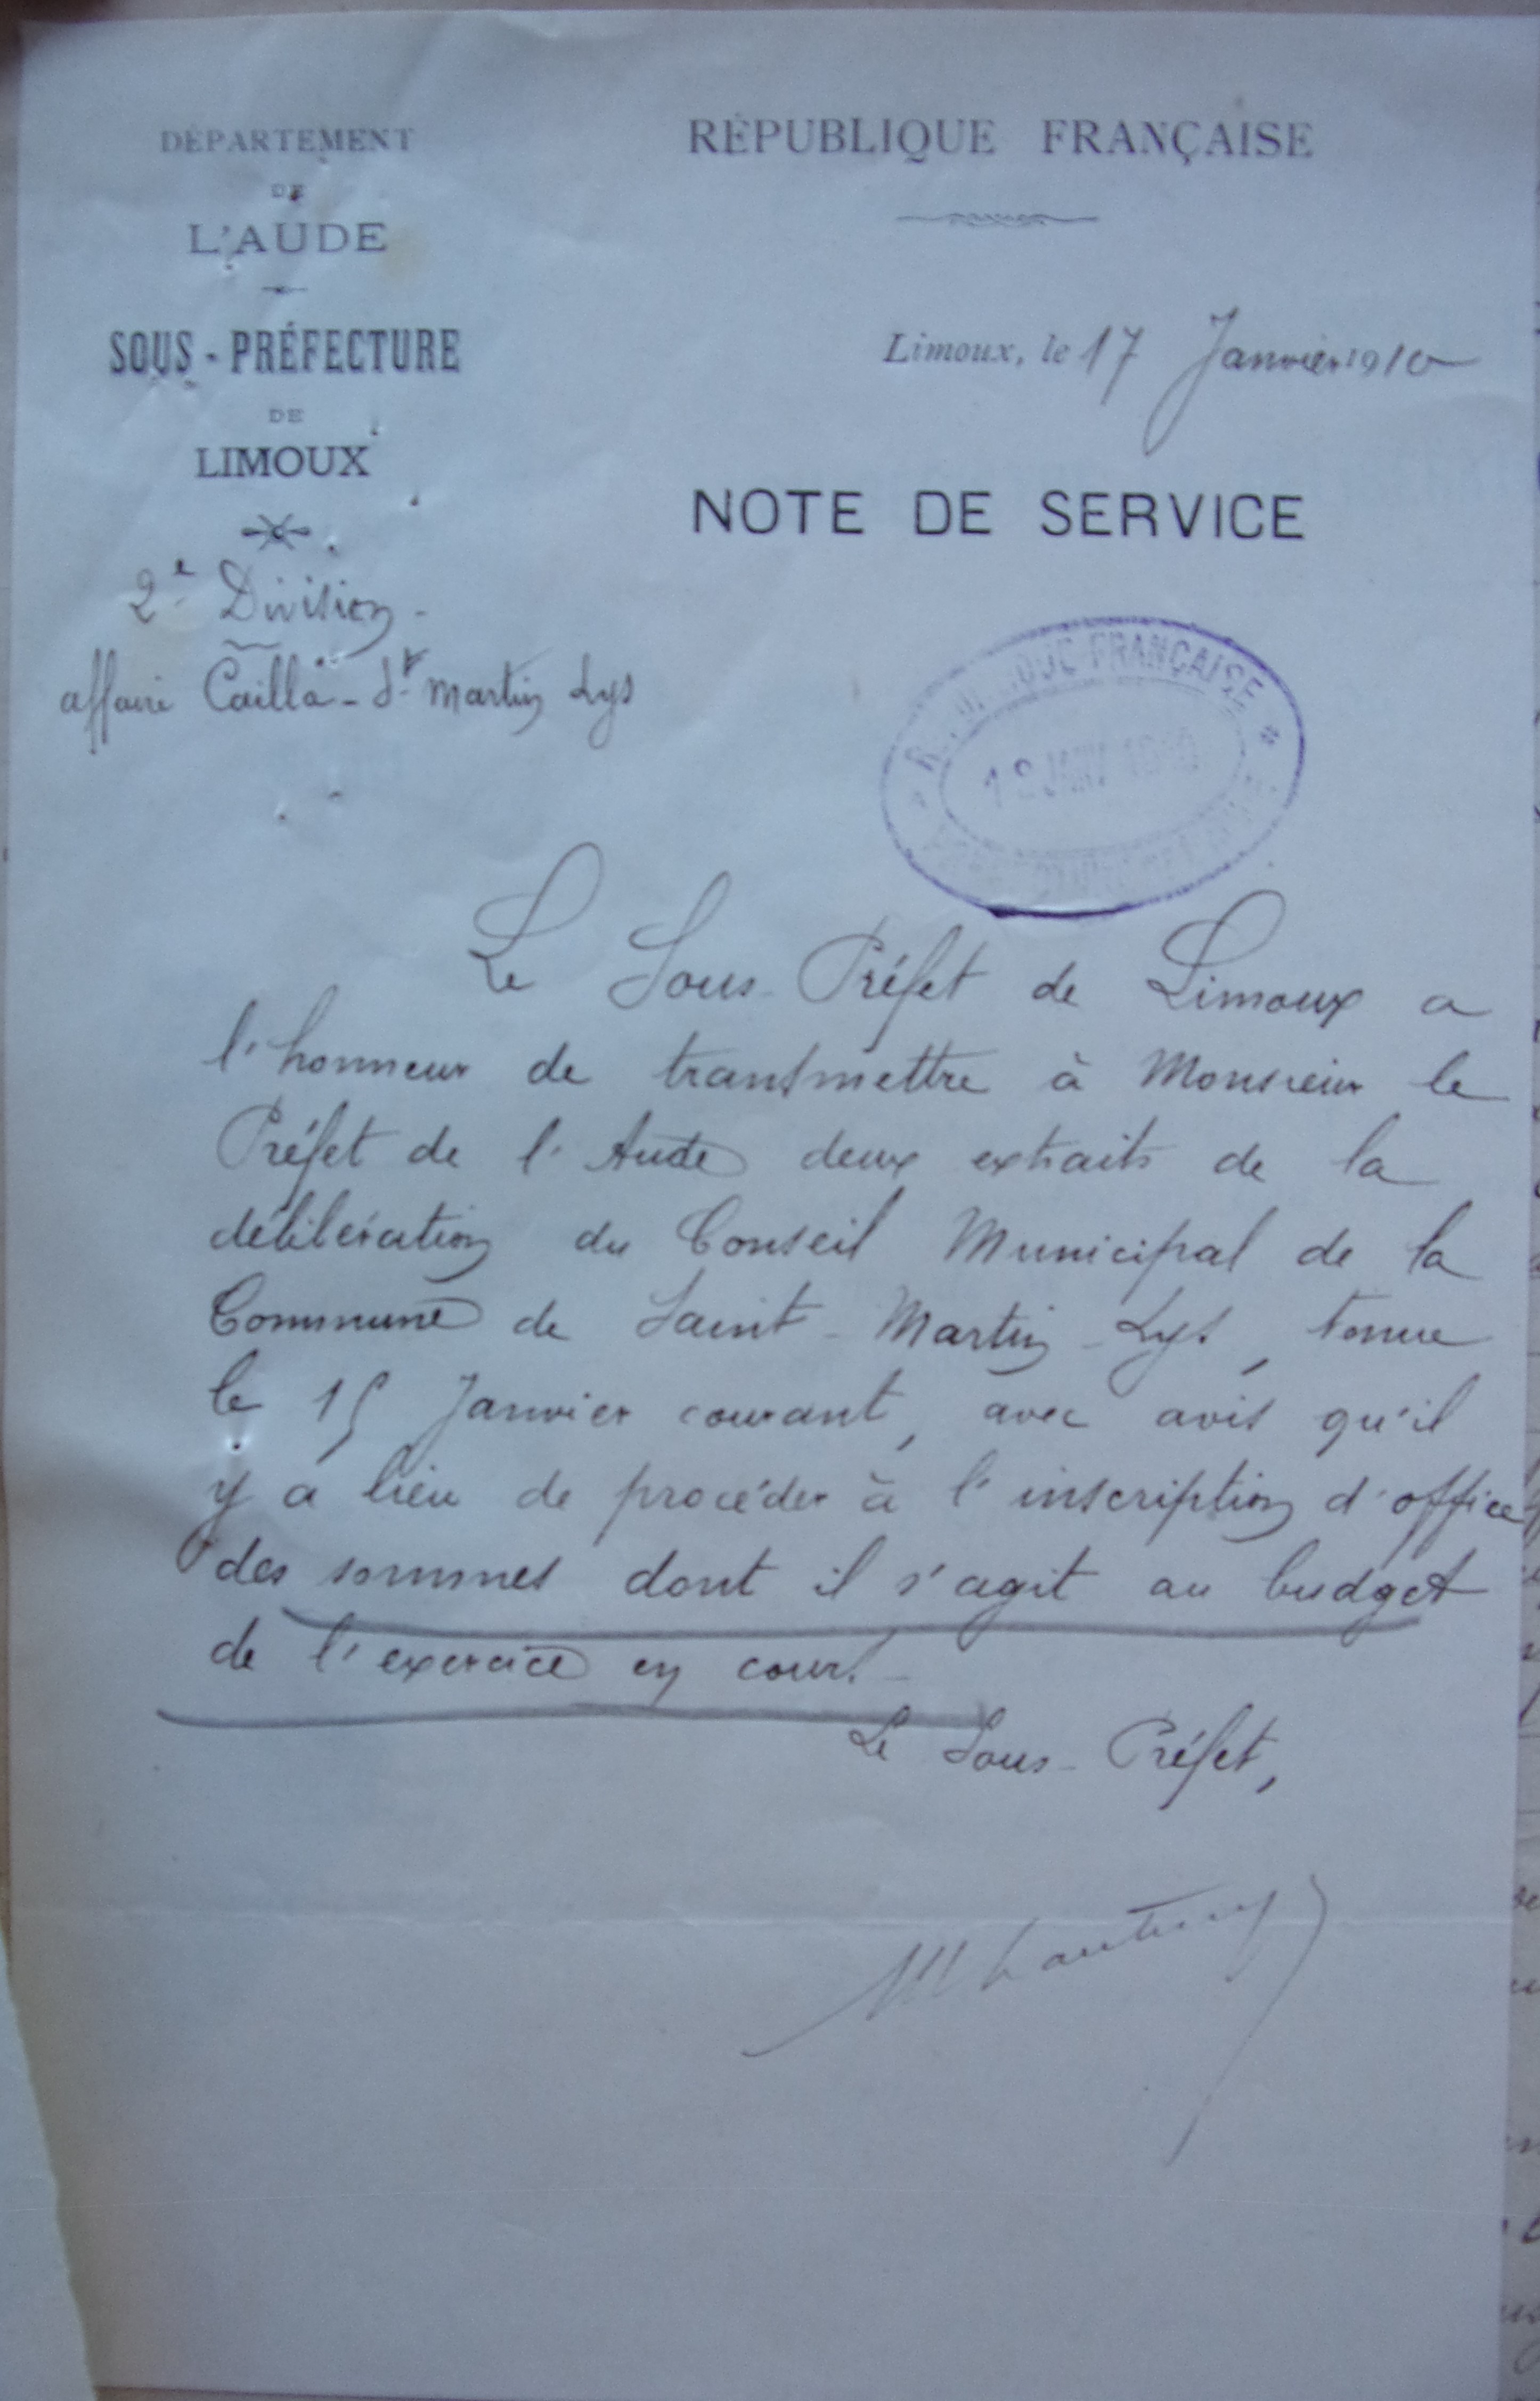 DÉPARTEMENT
DE
L'AUDE
SOUS-PRÉFECTURE
DE
LIMOUX
2e Division
affaire Cailla - St Martin Lys
RÉPUBLIQUE FRANÇAISE
Limoux, le 17 Janvier 1910
NOTE DE SERVICE
FRANÇAISE
JANV
Le Sous-Préfet de Limoux a
l'honneur de transmettre à Monsieur le
Préfet de l'Aude deux extraits de la
délibération du Conseil Municipal de la
Commune de Saint-Martin-Lys, tenue
le 15 Janvier courant, avec avis qu'il
y a lieu de procéder à l'inscription d'office
des sommes dont il s'agit au budget
de l'exercice en cours.
Le Sous-Préfet,